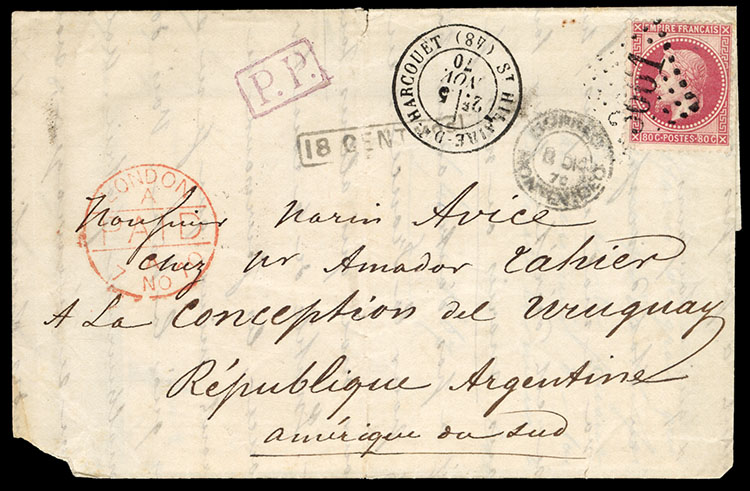 P.P.
18 CENT
ST HILAIRE-DU-HARCOUET (87)
2E
5
NOV
70
EMPIRE FRANÇAIS
80C-POSTES-80C
CORREO
MONTEVIDEO
8 DIC
70
LONDON
A
PAID
7 NO 70
Monsieur Marin Avice
chez Mr Amador Tahier
A La Conception del Uruguay
République Argentine
amérique du sud